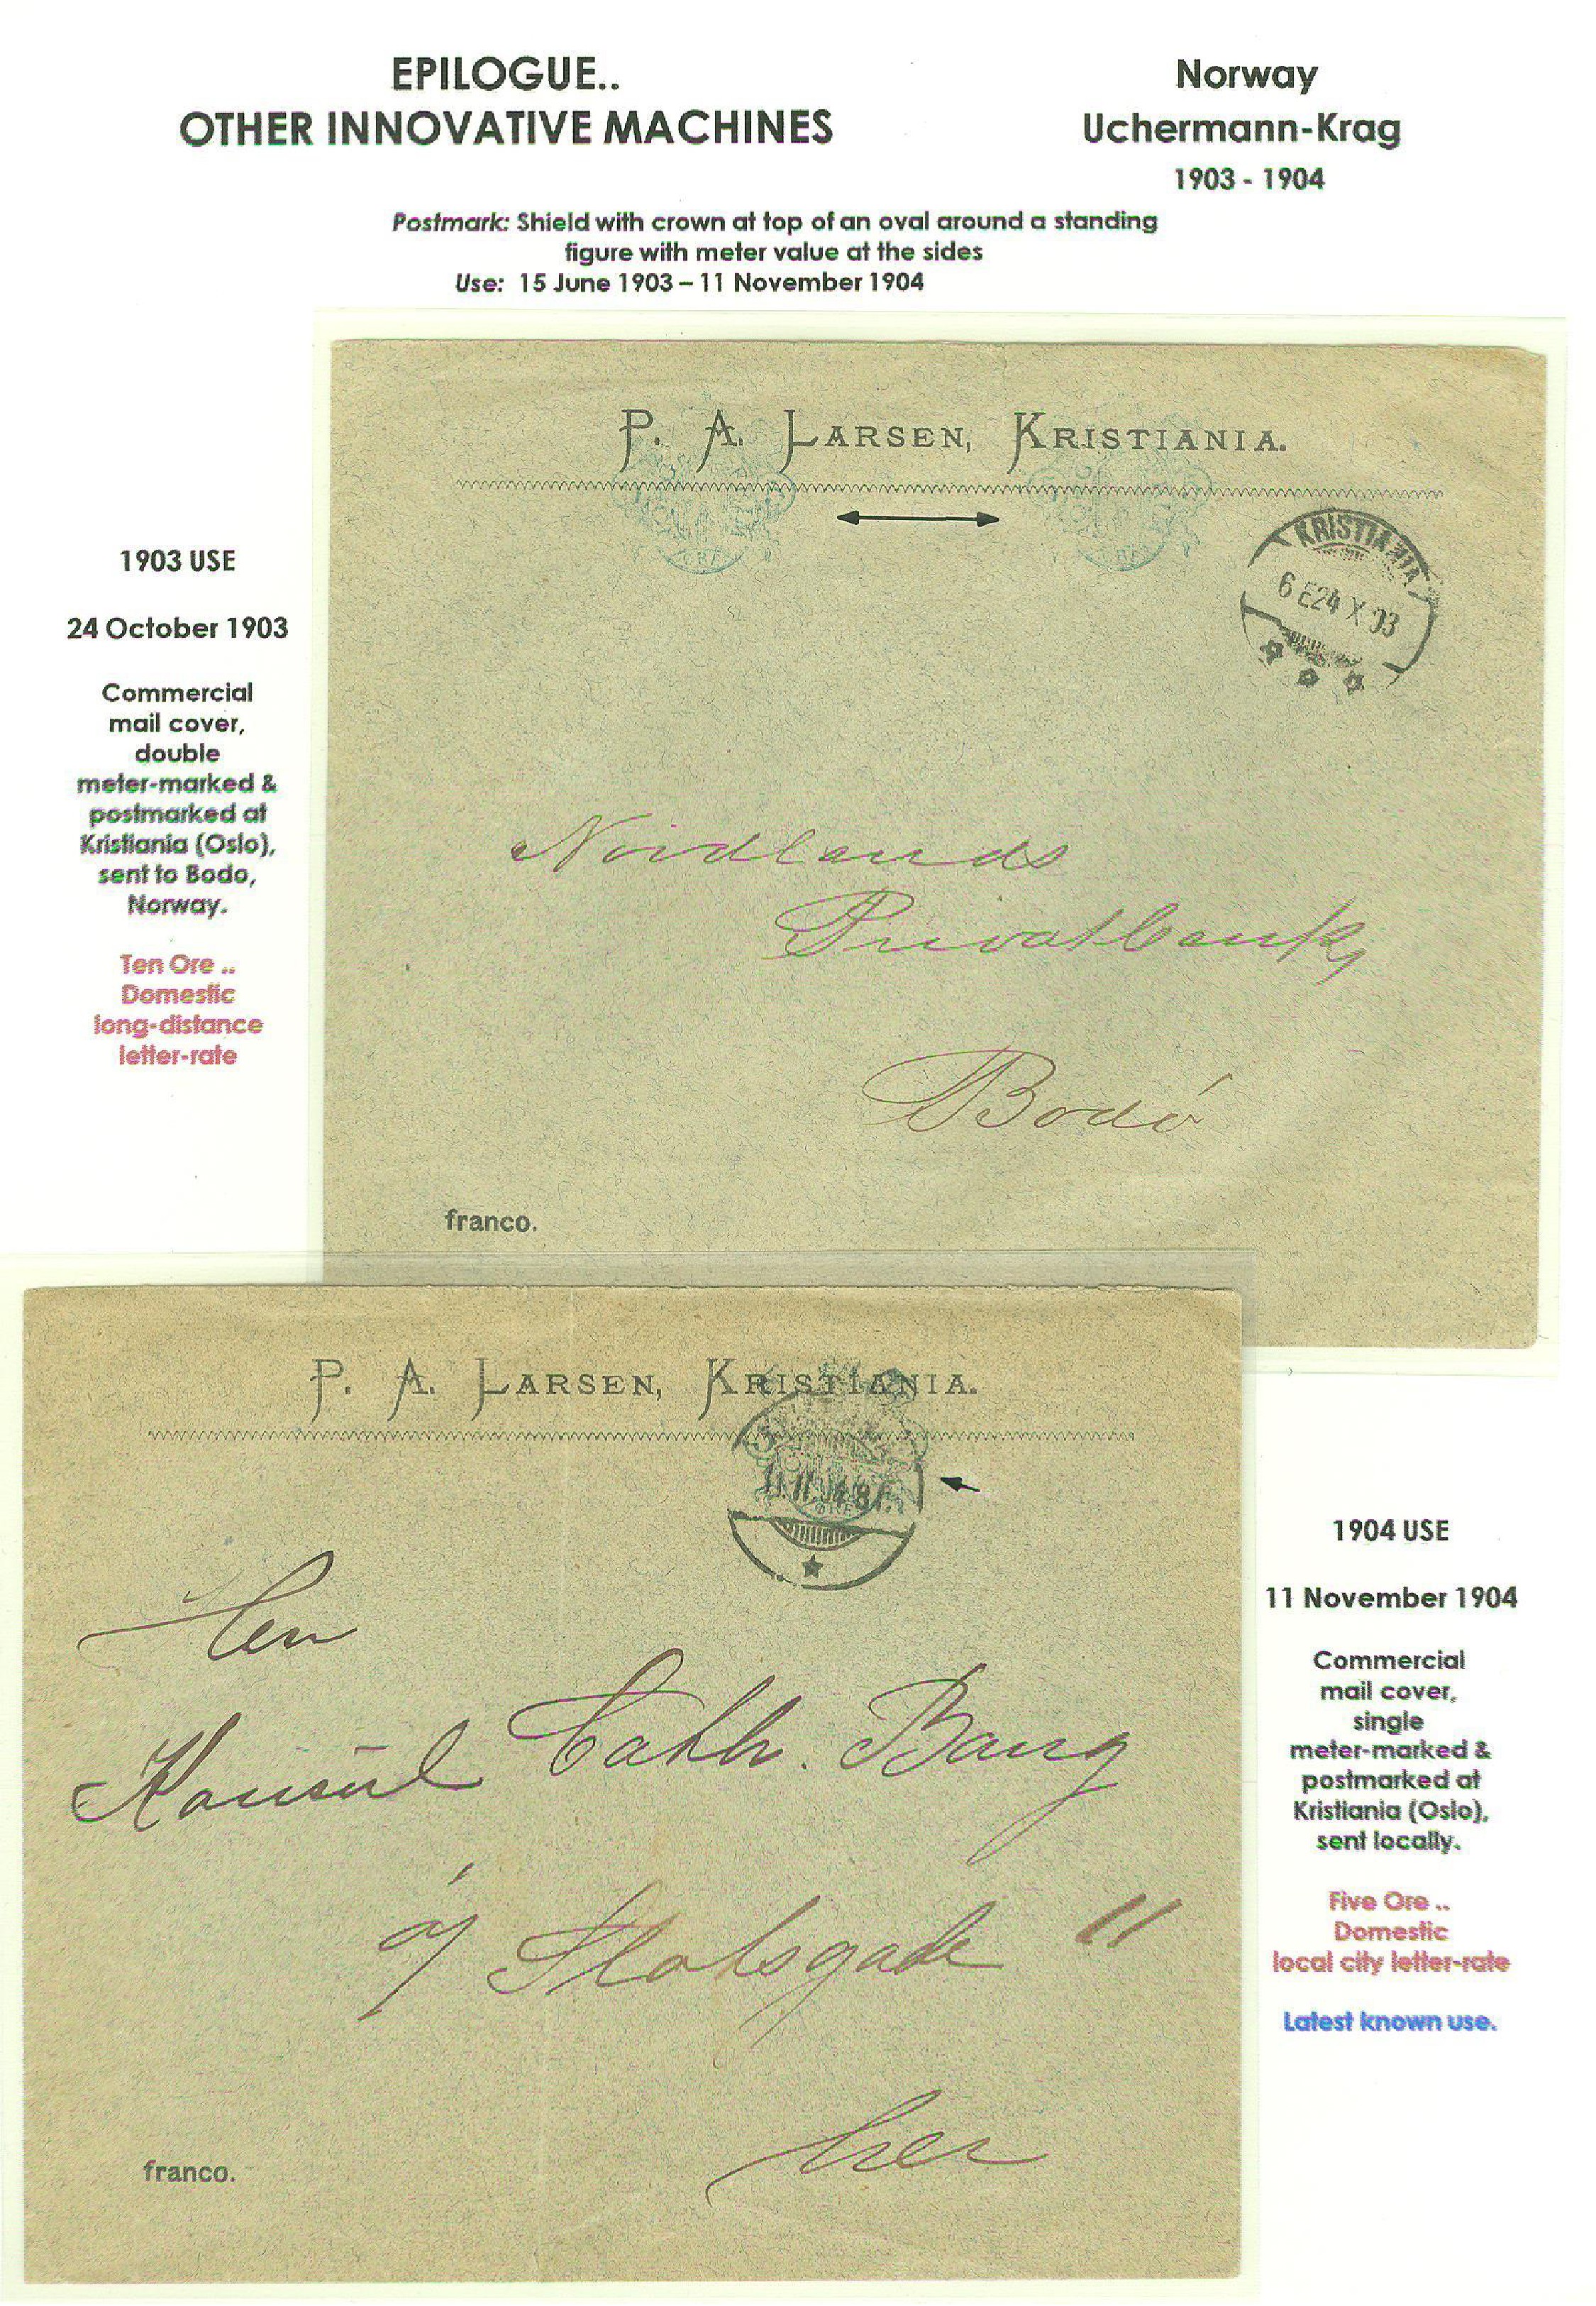 EPILOGUE..
OTHER INNOVATIVE MACHINES
Norway
Uchermann-Krag
1903 - 1904
Postmark: Shield with crown at top of an oval around a standing
figure with meter value at the sides
Use: 15 June 1903 – 11 November 1904
P. A. LARSEN, KRISTIANIA.
KRISTIANIA
6 E 24 X 03
Nordlands
Privatbank,
Bodó
franco.
1903 USE
24 October 1903
Commercial
mail cover,
double
meter-marked &
postmarked at
Kristiania (Oslo),
sent to Bodo,
Norway.
Ten Ore ..
Domestic
long-distance
letter-rate
P. A. LARSEN, KRISTIANIA.
11.11.04.8
Herr
Konsul Cathr. Bang
Slotsgade 11
her
franco.
1904 USE
11 November 1904
Commercial
mail cover,
single
meter-marked &
postmarked at
Kristiania (Oslo),
sent locally.
Five Ore ..
Domestic
local city letter-rate
Latest known use.